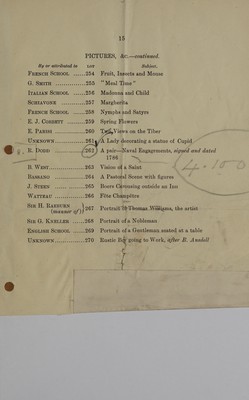 15
PICTURES, &c.—continued.
By or attributed to LOT Subject.
FRENCH SCHOOL ......254 Fruit, Insects and Mouse
G. SMITH ...............255 "Meal Time"
ITALIAN SCHOOL ......256 Madonna and Child
SCHIAVONE ............257 Margherita
FRENCH SCHOOL ......258 Nymphs and Satyrs
E. J. COBBETT .........259 Spring Flowers
E. PARISI ...............260 Two Views on the Tiber
UNKNOWN ...............261 A Lady decorating a statue of Cupid
R. DODD ...............262 A pair—Naval Engagements, signed and dated
1786
B. WEST ..................263 Vision of a Saint
BASSANO ...............264 A Pastoral Scene with figures
J. STEEN ...............265 Boers Carousing outside an Inn
WATTEAU ...............266 Fête Champêtre
SIR H. RAEBURN (manner of) } 267 Portrait of Thomas Williams, the artist
SIR G. KNELLER ......268 Portrait of a Nobleman
ENGLISH SCHOOL ......269 Portrait of a Gentleman seated at a table
UNKNOWN ...............270 Rustic Boy going to Work, after R.